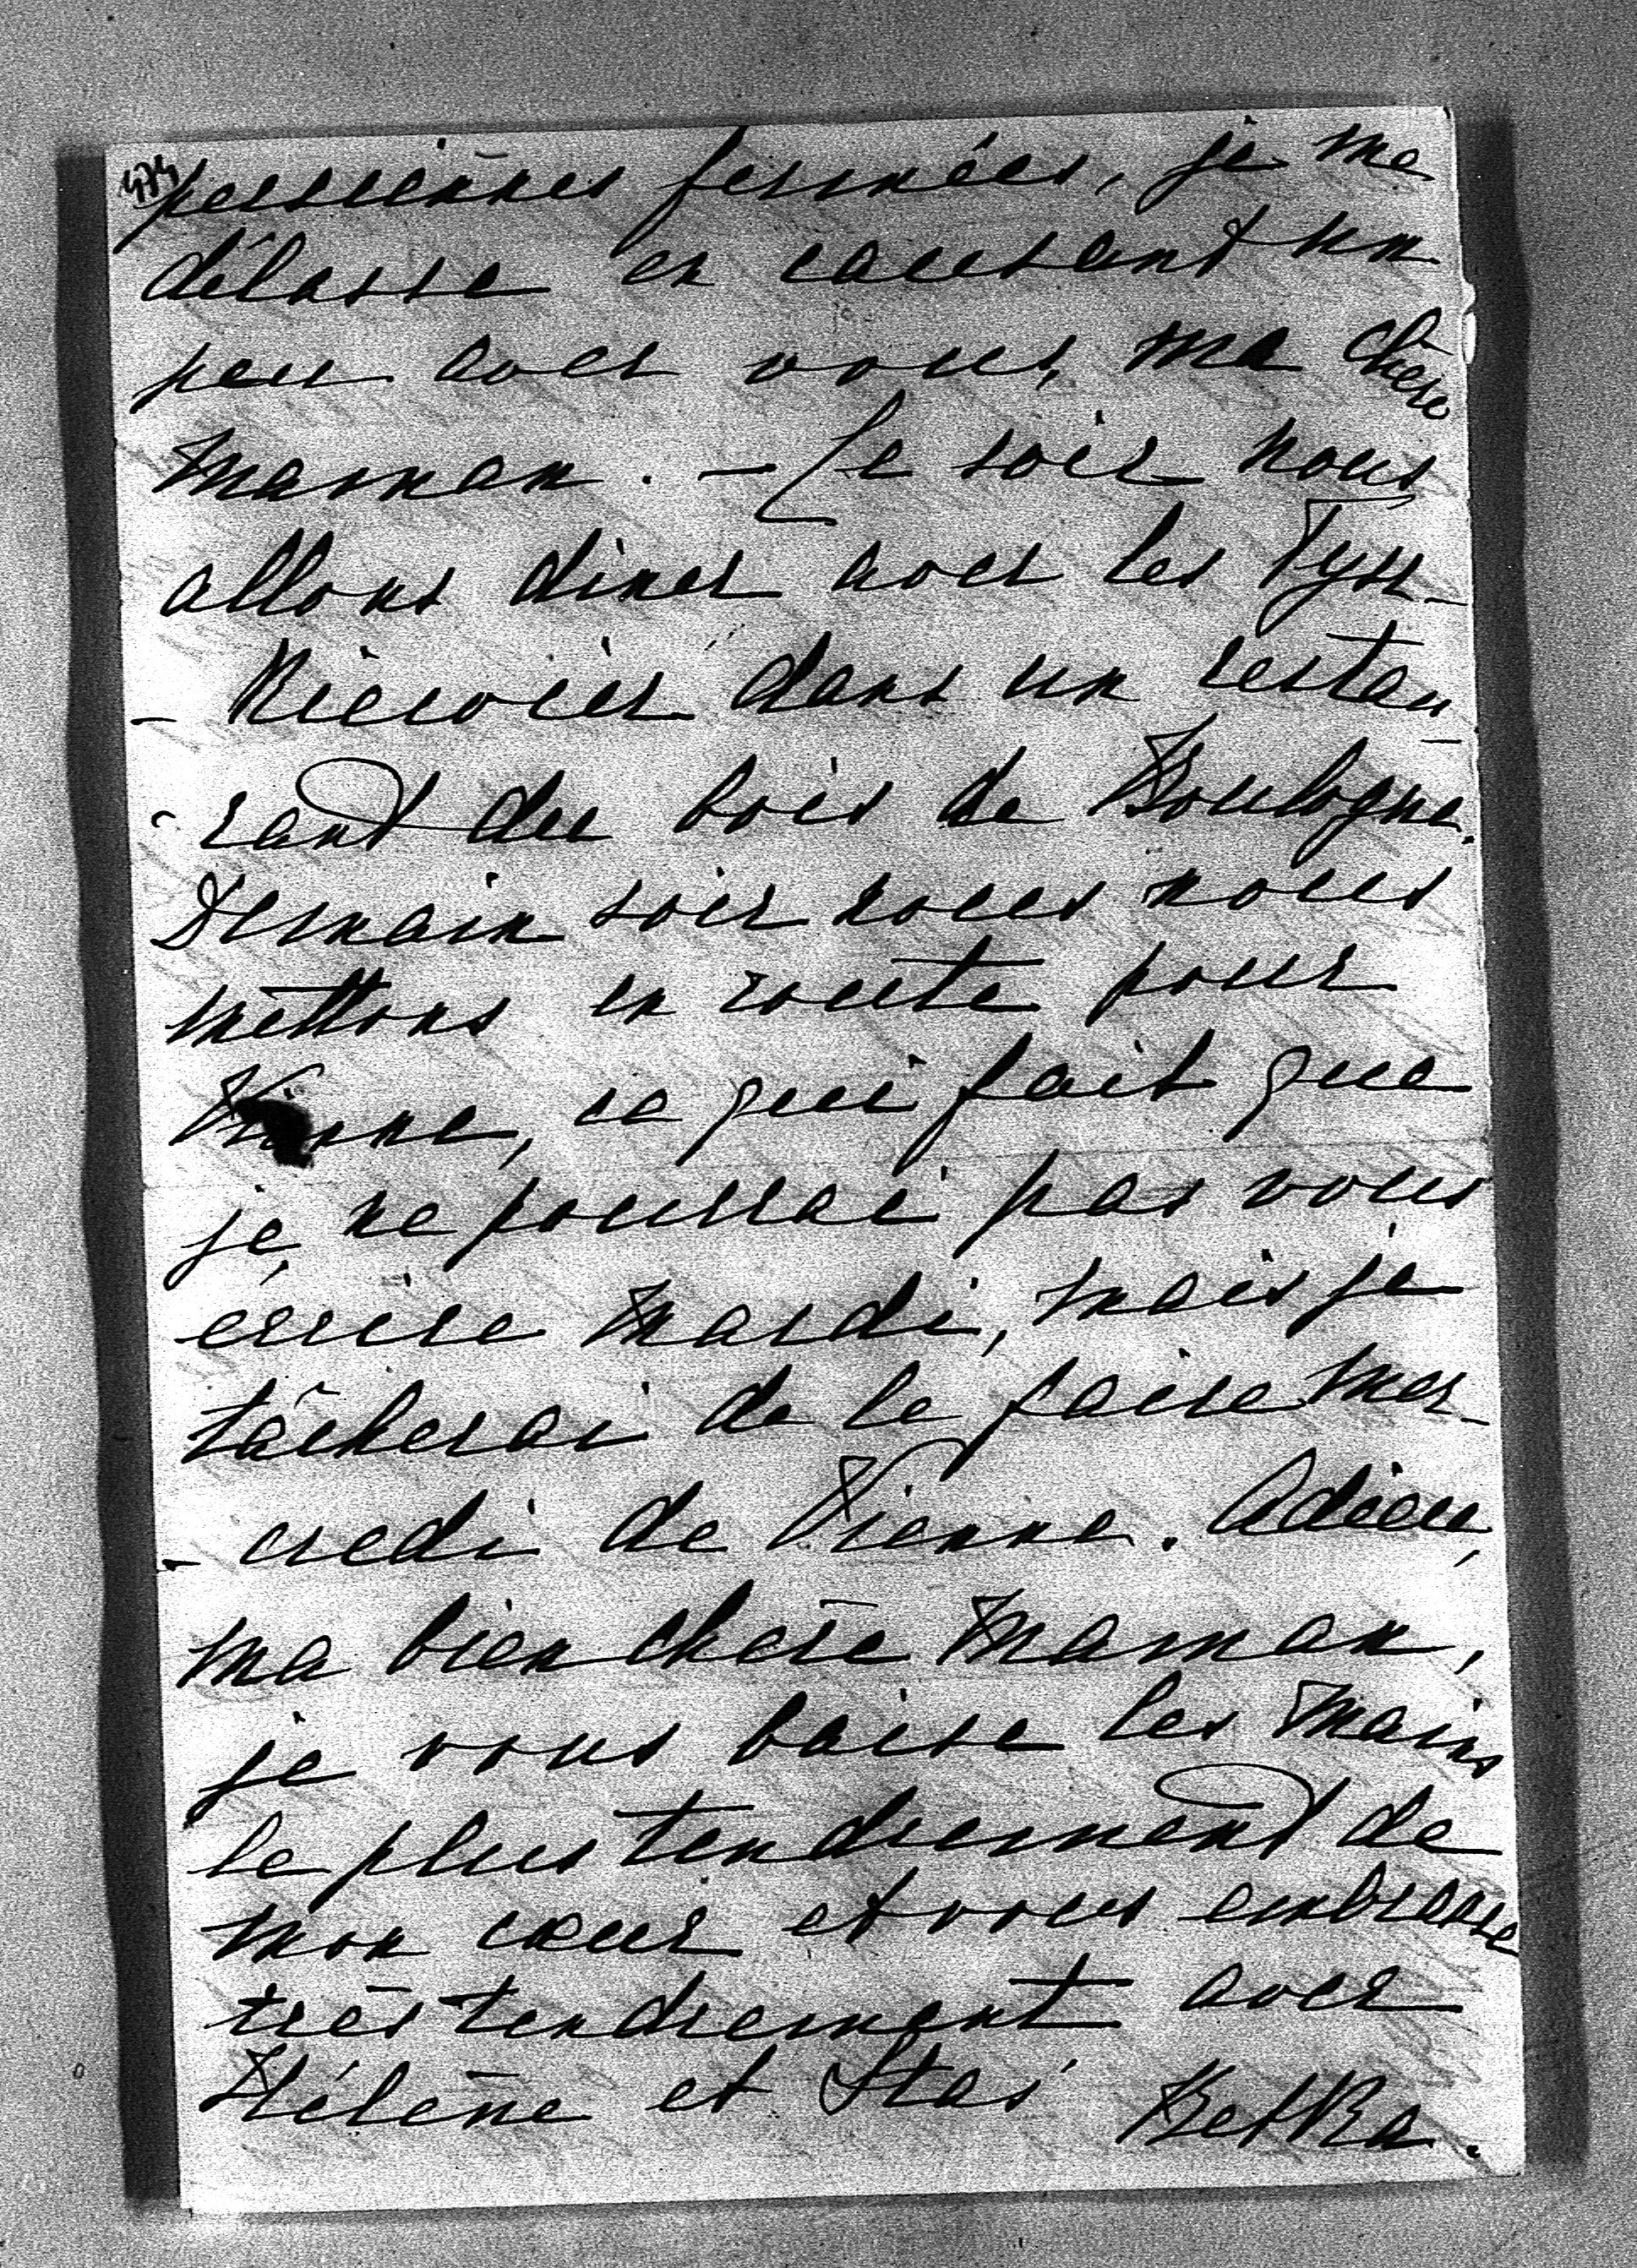 474
persiennes fermées, je me
délasse en causant un
peu avec vous, ma chère
Maman. — Ce soir nous
allons diner avec les Tysz-
- Kiewicz dans un restau
- rant du bois de Boulogne.
Demain soir nous nous
mettons en route pour
Vienne, ce qui fait que
je ne pourrai pas vous
écrire Mardi, mais je
tâcherai de le faire Mer-
- credi de Vienne. Adieu,
ma bien chère Maman,
je vous baise les mains
le plus tendrement de
mon cœur et vous embrasse
très tendrement avec
Hélène et Stas'
BetKa.